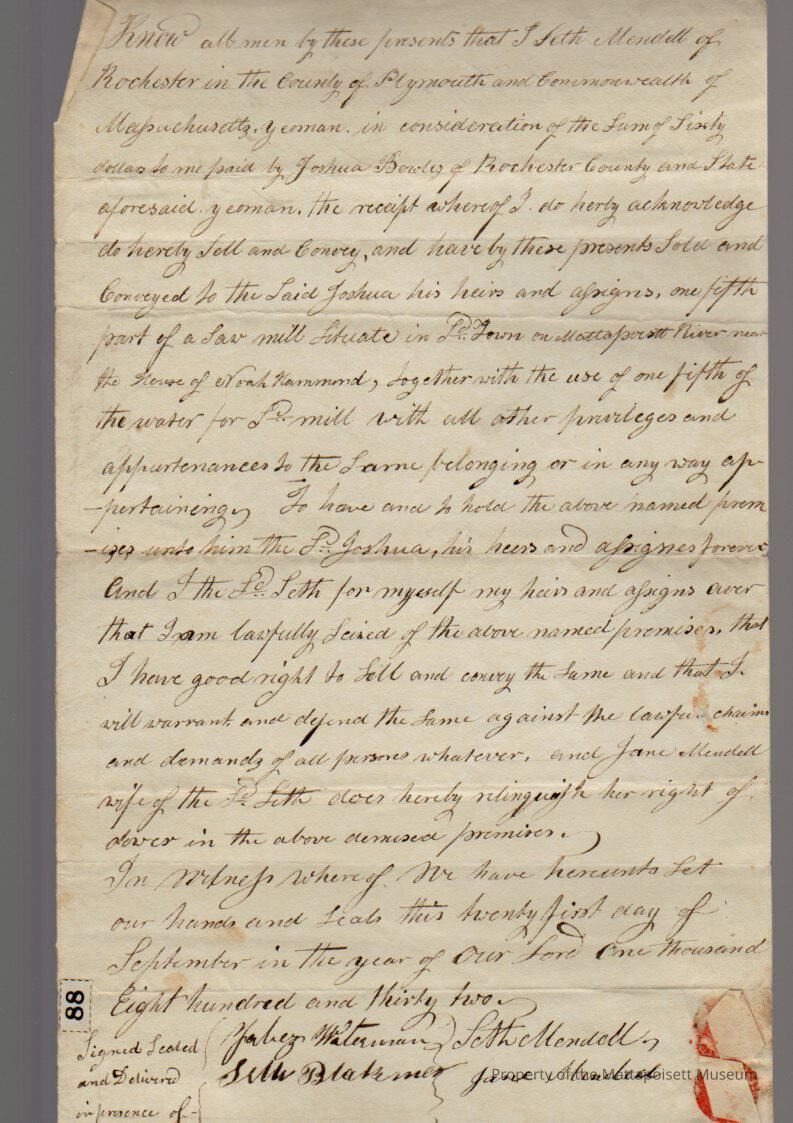 Know all men by these presents that I Seth Mendell of
Rochester in the County of Plymouth and Commonwealth of
Massachusetts, yeoman. in consideration of the Sum of Sixty
dollars to me paid by Joshua Bowles of Rochester County and State
aforesaid. yeoman. the receipt whereof I. do herby acknowledge
do hereby Sell and Convey, and have by these presents Sold and
Conveyed to the Said Joshua his heirs and assigns, one fifth
part of a Saw mill Situate in Sd. Town on Mattapoisett River near
the House of Noah Hammond, together with the use of one fifth of
the water for Sd. mill with all other privileges and
appurtenances to the Same belonging or in any way ap-
-pertaining, To have and to hold the above named prem
-ises unto him the Sd. Joshua, his heirs and assignes forever
And I the Sd. Seth for myself my heirs and assigns aver
that I am lawfully Seized of the above named premises, that
I have good right to Sell and convey the Same and that I.
will warrant and defend the Same against the lawful claims
and demands of all persons whatever. and Jane Mendell
wife of the Sd. Seth does hereby relinquish her right of
dower in the above demised premises.
In Witness whereof. We have hereunto Set
our hands and Seals this twenty first day of
September in the year of Our Lord One thousand
Eight hundred and thirty two.
88
Signed Sealed
and Delivered
in presence of-
Jabez Waterman
Seth Blakmer
Seth Mendell
Jane Mendell
Property of the Mattapoisett Museum